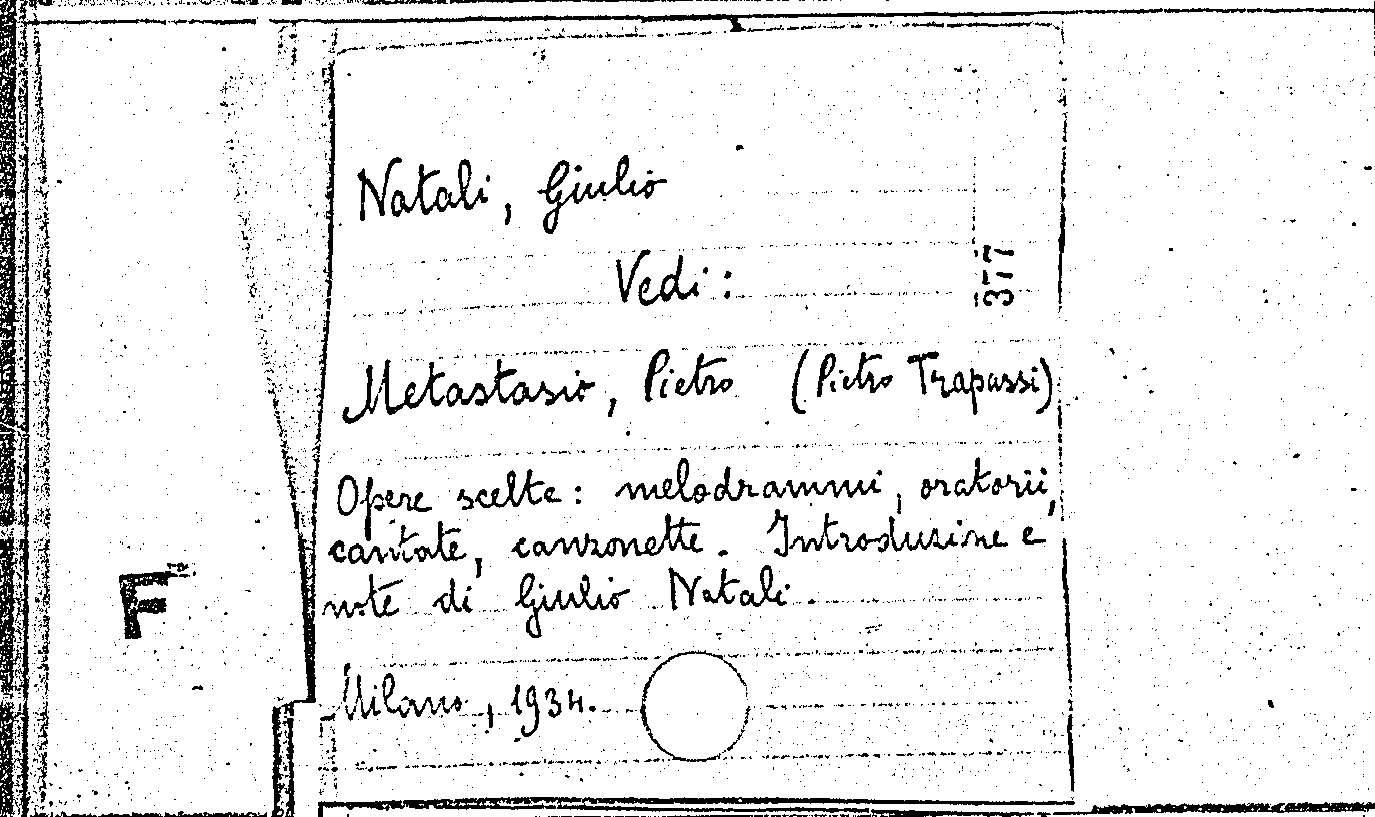 Natali, Giulio
Vedi:
377
Metastasio, Pietro (Pietro Trapassi)
Opere scelte: melodrammi, oratorii,
cantate, canzonette. Introduzione e
note di Giulio Natali.
Milano, 1934.
F